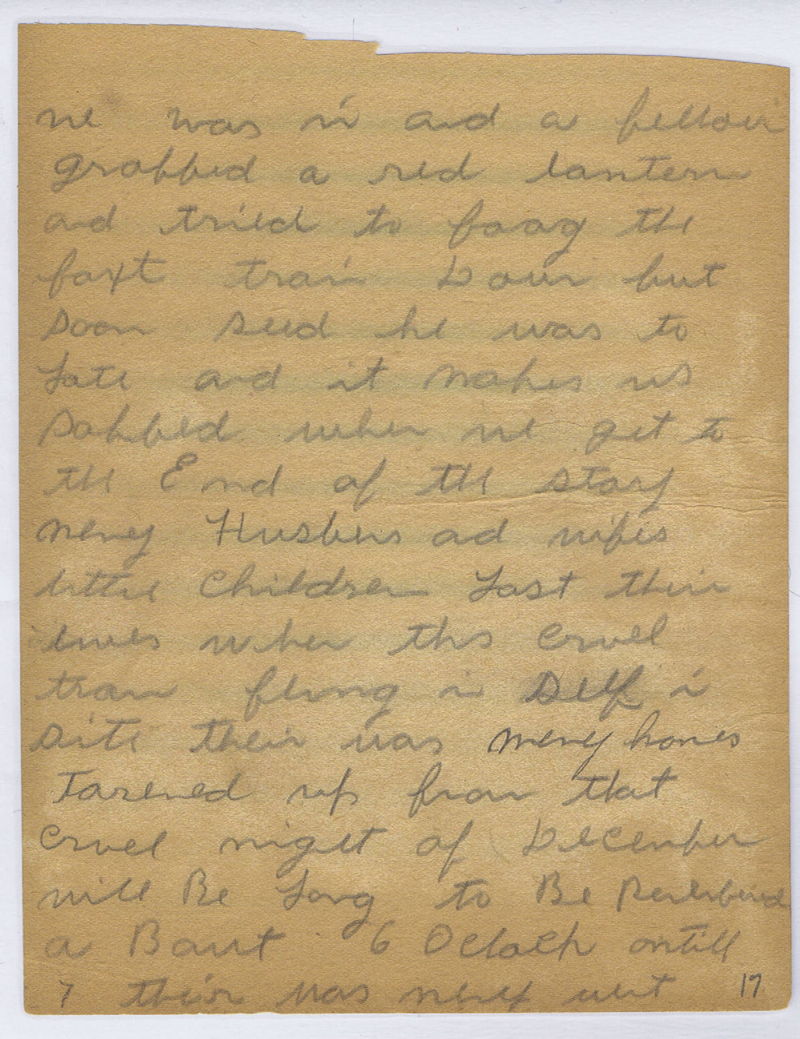 we was in and a fellow
grabbed a red lantern
and tried to faag the
faxt train Down but
Soon Seed he was to
Late and it makes us
Sabbed when we get to
the End of the story
meny Husbens ad wifes
little Children Lost thier
lives when this cruel
train flung in Self in
site their was meny homes
up from that
cruel night of December
will Be Long to Be
a Bout 6 Oclock ontill
7 thier was meny went 17